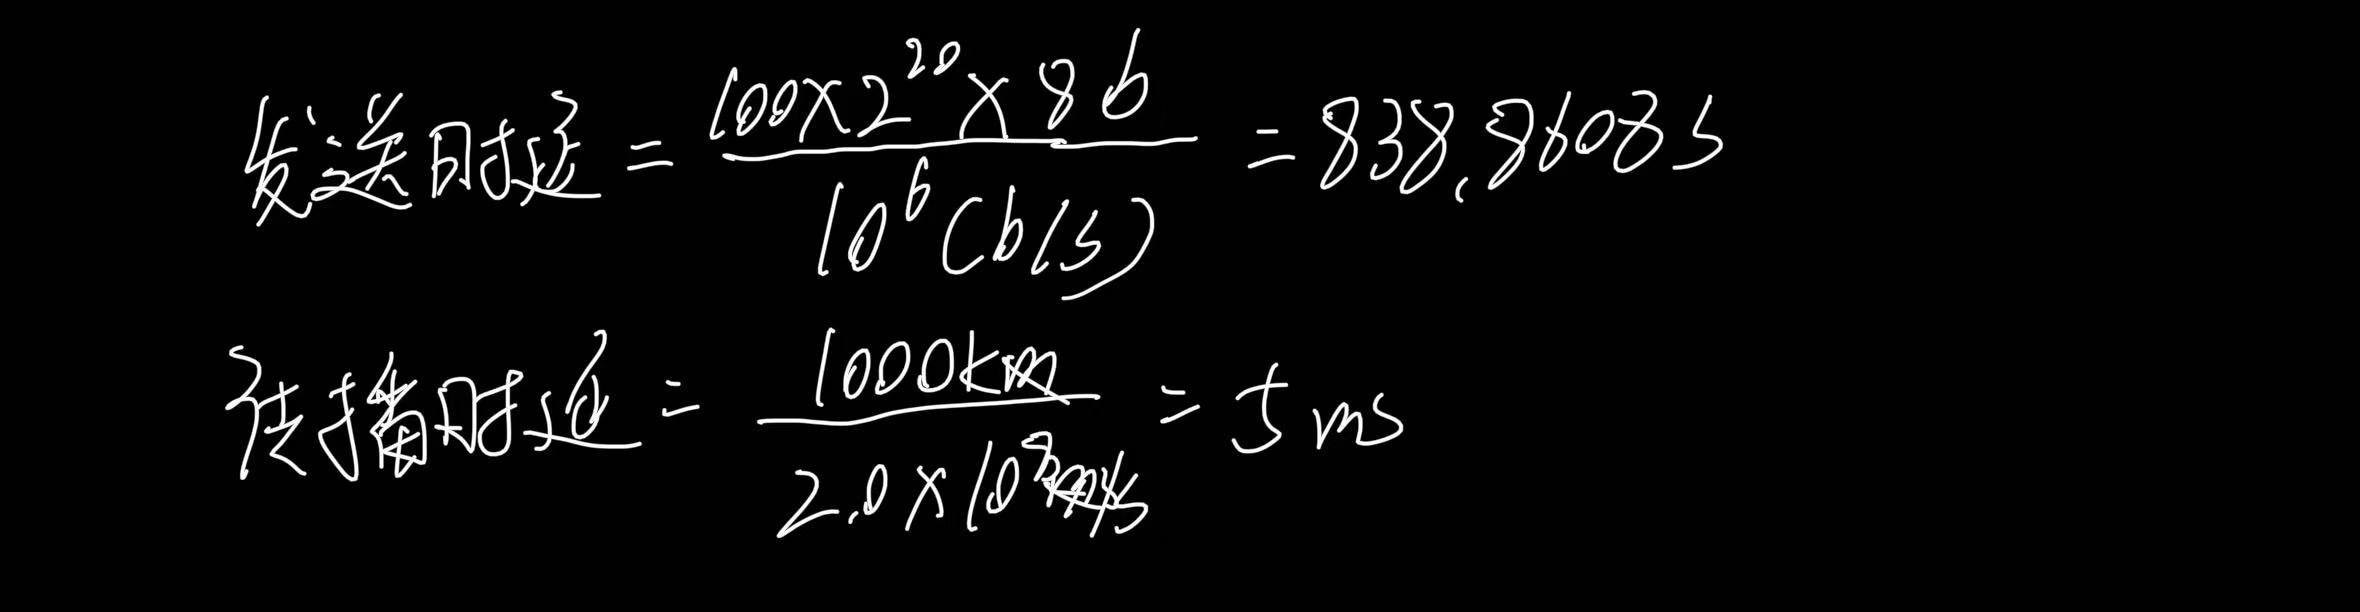 发送时延 = 100×2^20×8b / 10^6(b/s) = 838.8608s
传播时延 = 1000km / 2.0×10^8m/s = 5ms